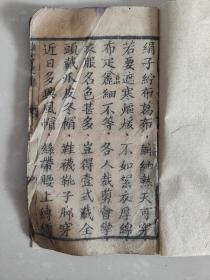 絹子紛布葛布 納熱天可穿
若要遮寒煖 不如絮衣厚綿
布疋麄細不等 各人裁剪會穿
衣服名色甚多 豈得壹式裁全
頭戴瓜皮冬帽 鞋襪靴子脚穿
近日多興風帽 絲帶腰上